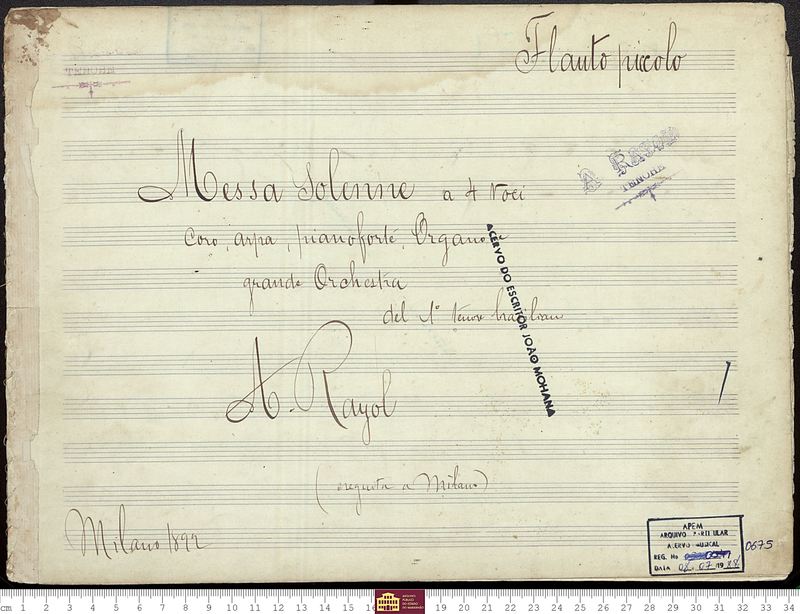 Flauto piccolo
TENORE
Messa Solenne a 4 Voci
A RAYOL
TENORE
Coro, arpa, pianoforte, Organo e
grande Orchestra
del 1º tenore
ACERVO DO ESCRITOR JOÃO MOHANA
A. Rayol
(eseguita a Milano)
Milano 1892
APEM
ARQUIVO PARTICULAR
ACERVO MUSICAL
REG. No 0675
DATA 02.07.19
cm 1 2 3 4 5 6 7 8 9 10 11 12 13 14 15 16 18 19 20 21 22 23 24 25 26 27 28 29 30 31 32 33 34
ARQUIVO
PÚBLICO
DO ESTADO
DO MARANHÃO